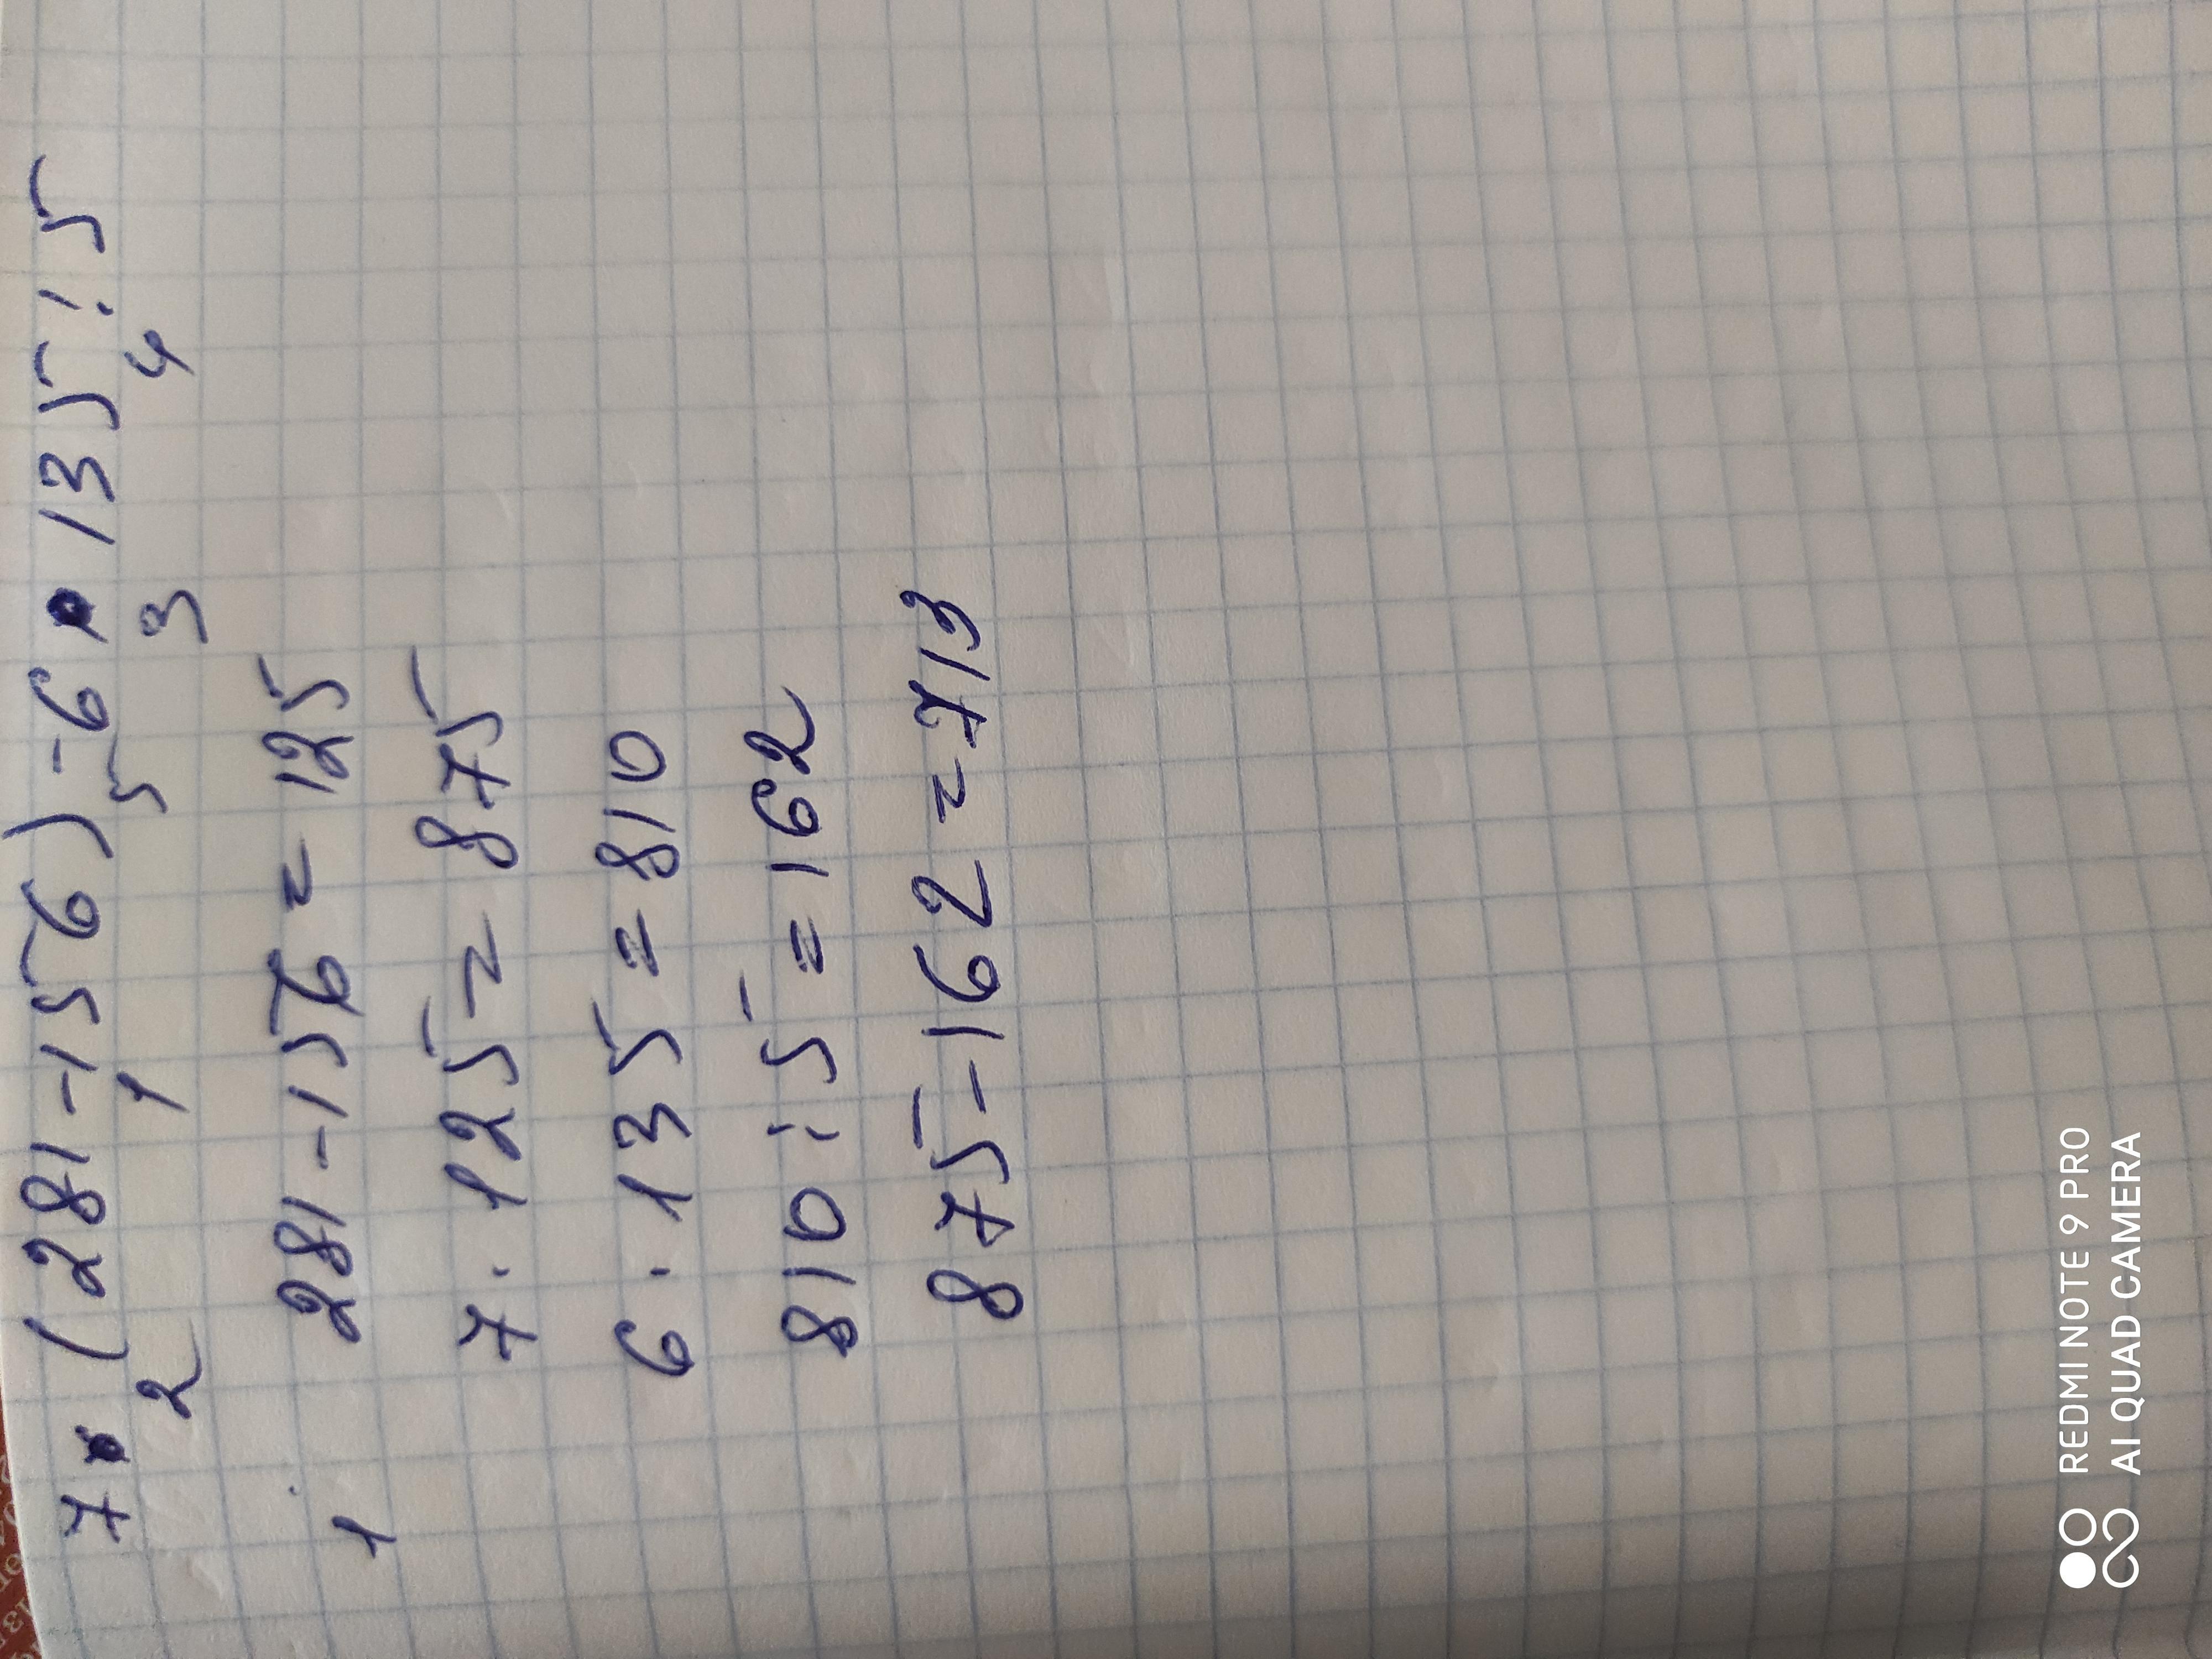 7 · (281 - 156) - 6 · 135 : 5
2 1 5 3 4
1 281 - 156 = 125
7 · 125 = 875
6 · 135 = 810
810 : 5 = 162
875 - 162 = 713
REDMI NOTE 9 PRO
AI QUAD CAMERA